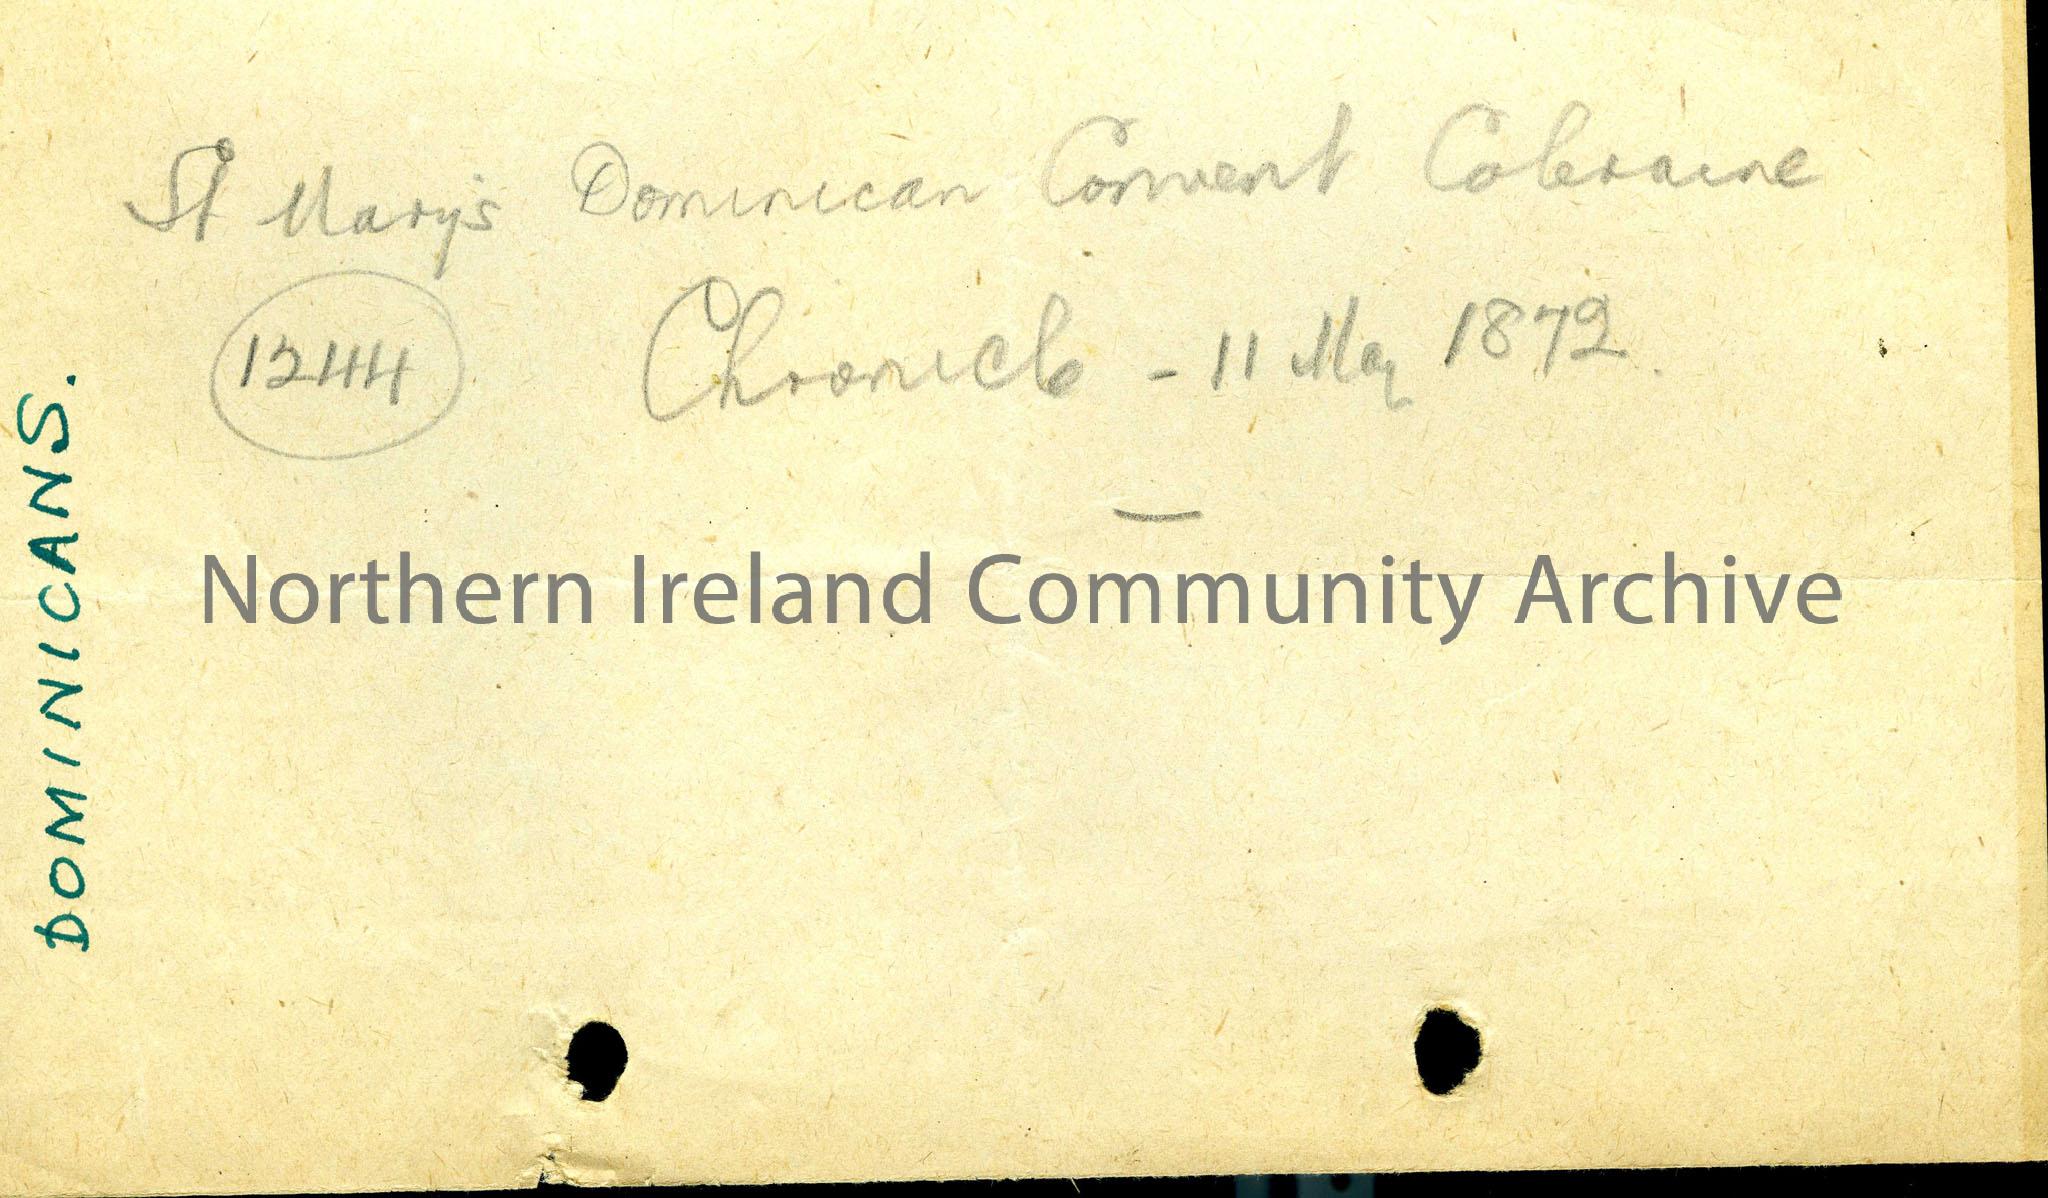 St Mary's Dominican Convent Coleraine
1244 Chronicle - 11 May 1872.
DOMINICANS.
Northern Ireland Community Archive